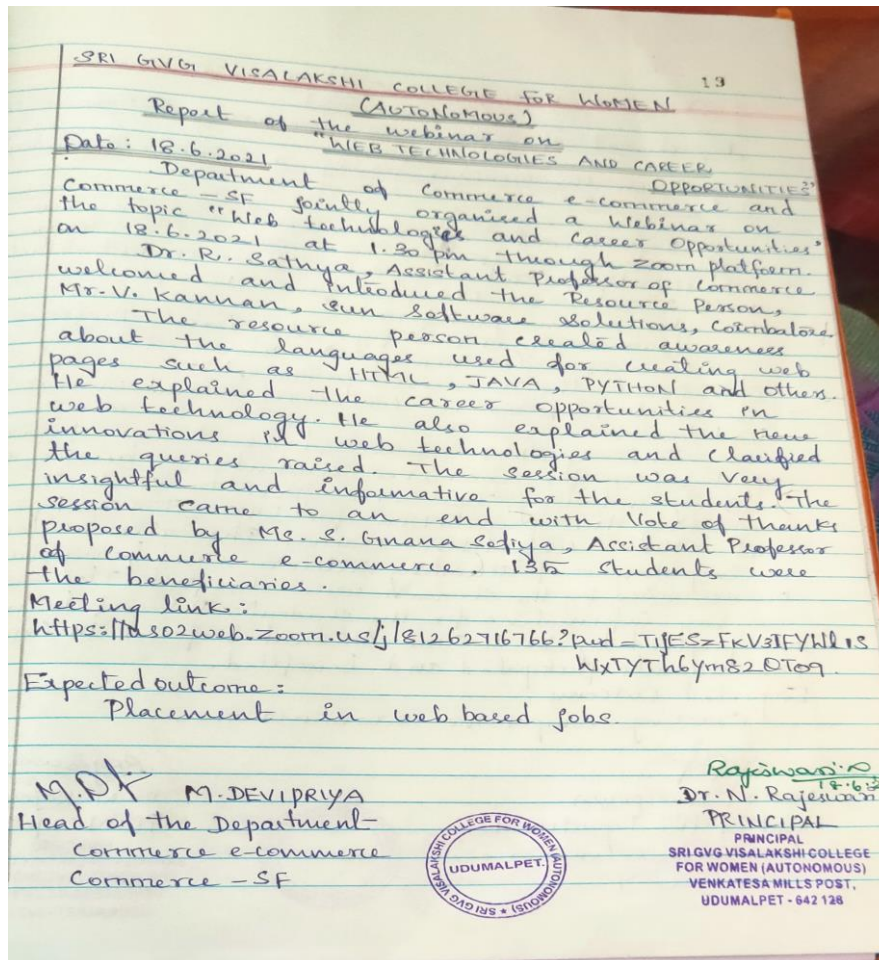 13
SRI GVG VISALAKSHI COLLEGE FOR WOMEN
(AUTONOMOUS)
Report of the webinar on
"WEB TECHNOLOGIES AND CAREER
OPPORTUNITIES"
Date: 18.6.2021
Department of Commerce e-commerce and
Commerce - SF jointly organised a Webinar on
the topic "Web technologies and Career Opportunities"
on 18.6.2021 at 1.30 pm through zoom platform.
Dr. R. Sathya, Assistant Professor of Commerce
welcomed and introduced the Resource Person,
Mr. V. Kannan, Sun Software Solutions, Coimbatore.
The resource person created awareness
about the languages used for creating web
pages such as HTML, JAVA, PYTHON and others.
He explained the career opportunities in
web technology. He also explained the new
innovations in web technologies and clarified
the queries raised. The session was very
insightful and informative for the students. The
session came to an end with Vote of thanks
proposed by Ms. S. Gnana Sofiya, Assistant Professor
of commerce e-commerce. 135 students were
the beneficiaries.
Meeting link:
https://us02web.zoom.us/j/81262716766?pwd=
Expected outcome:
Placement in web based jobs.
M. DEVIPRIYA
Head of the Department-
Commerce e-commerce
Commerce - SF
SRI GVG VISALAKSHI COLLEGE FOR WOMEN (AUTONOMOUS)
UDUMALPET.
Dr. N. Rajeswari
PRINCIPAL
PRINCIPAL
SRI GVG VISALAKSHI COLLEGE
FOR WOMEN (AUTONOMOUS)
VENKATESA MILLS POST,
UDUMALPET - 642 128